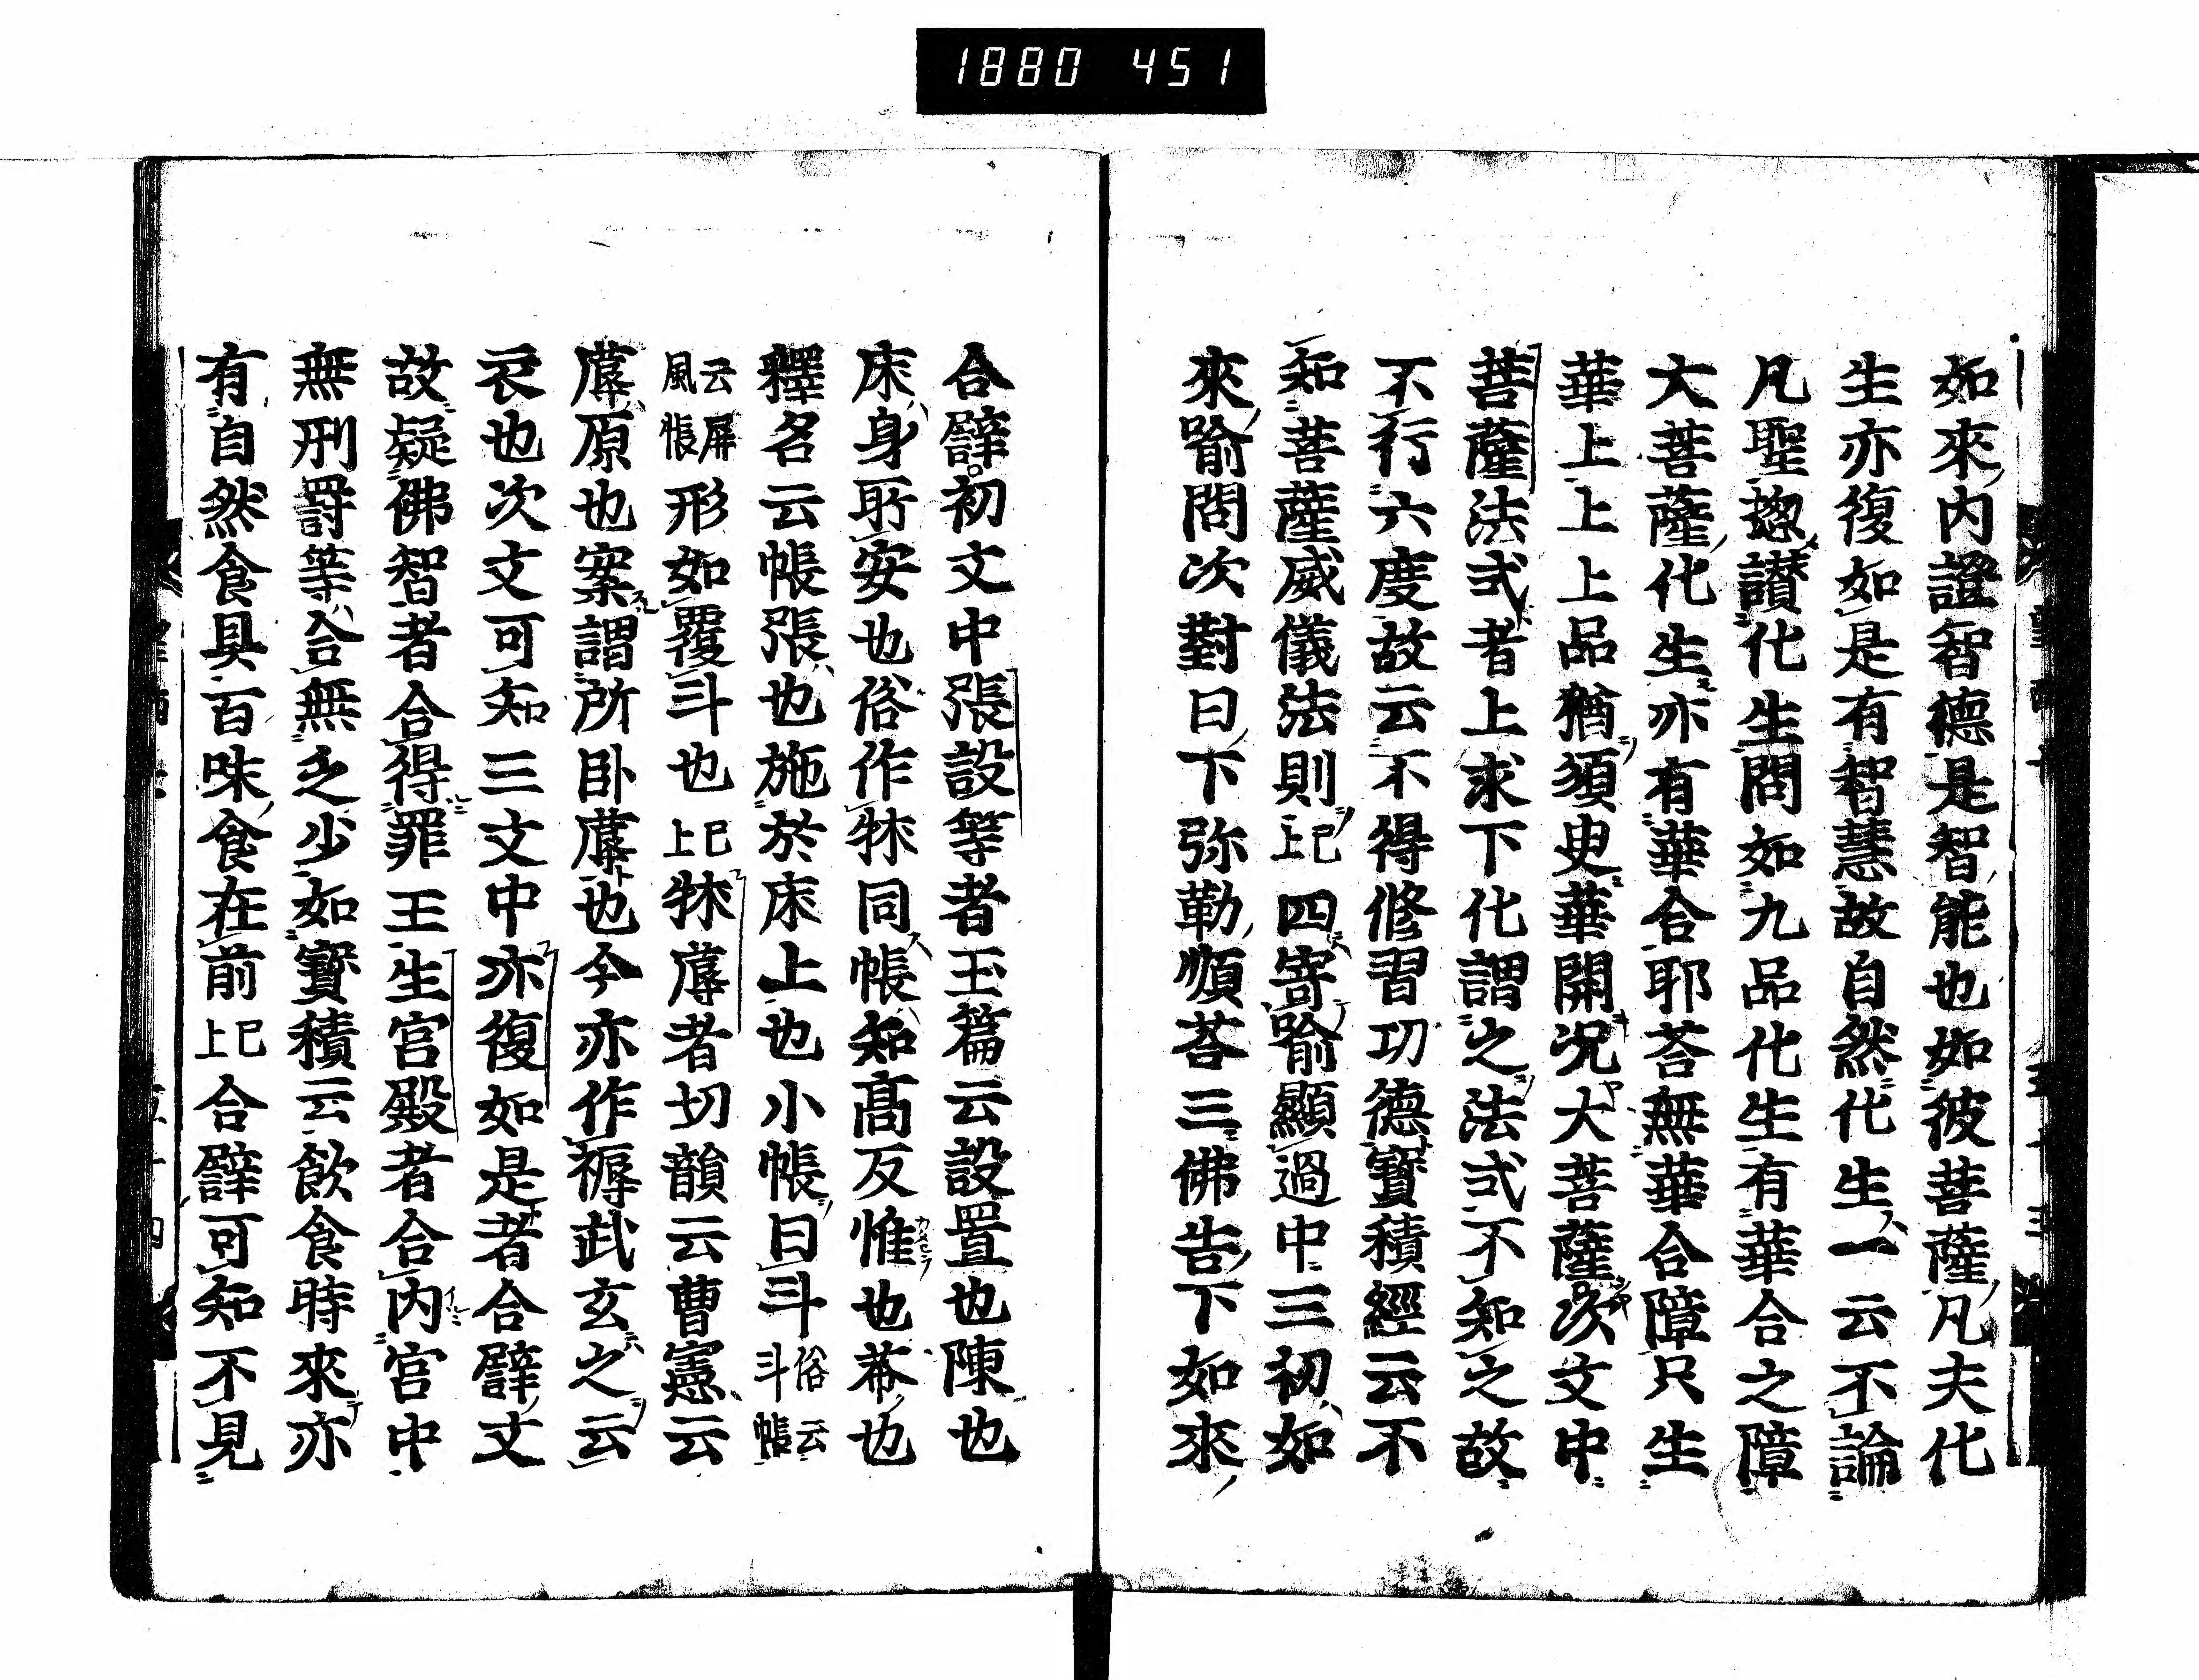 1880 451
如來內證智德是智能也如彼菩薩凡夫化
生亦復如是有智慧故自然化生一云不論
凡聖揔讃化生問如九品化生有華合之障
大菩薩化生亦有華合耶荅無華合障只生
華上上上上品猶須史華開況大菩薩次文中
菩薩法式者上求下化謂之法式不知之故
不行六度故云不得修習功德寶積經云不
知菩薩威儀法則已上四寄喻顯過中三初如
來喻問次對曰下弥勒順荅三佛告下如來
合譬初文中張設等者玉篇云設置也陳也
床身所安也俗作牀同帳知髙反惟也菤也
釋名云帳張也施於床上也小帳曰斗俗云斗帳
云屏風帳形如覆斗也已上牀蓐者切韻云曹憲云
蓐原也案謂所卧蓐也今亦作褥武玄之云
衣也次文可知三文中亦復如是者合譬文
故疑佛智者合得罪王生宮殿者合內宮中
無刑罸等合無乏少如寶積云飲食時來亦
有自然食具百味食在前已上合譬可知不見